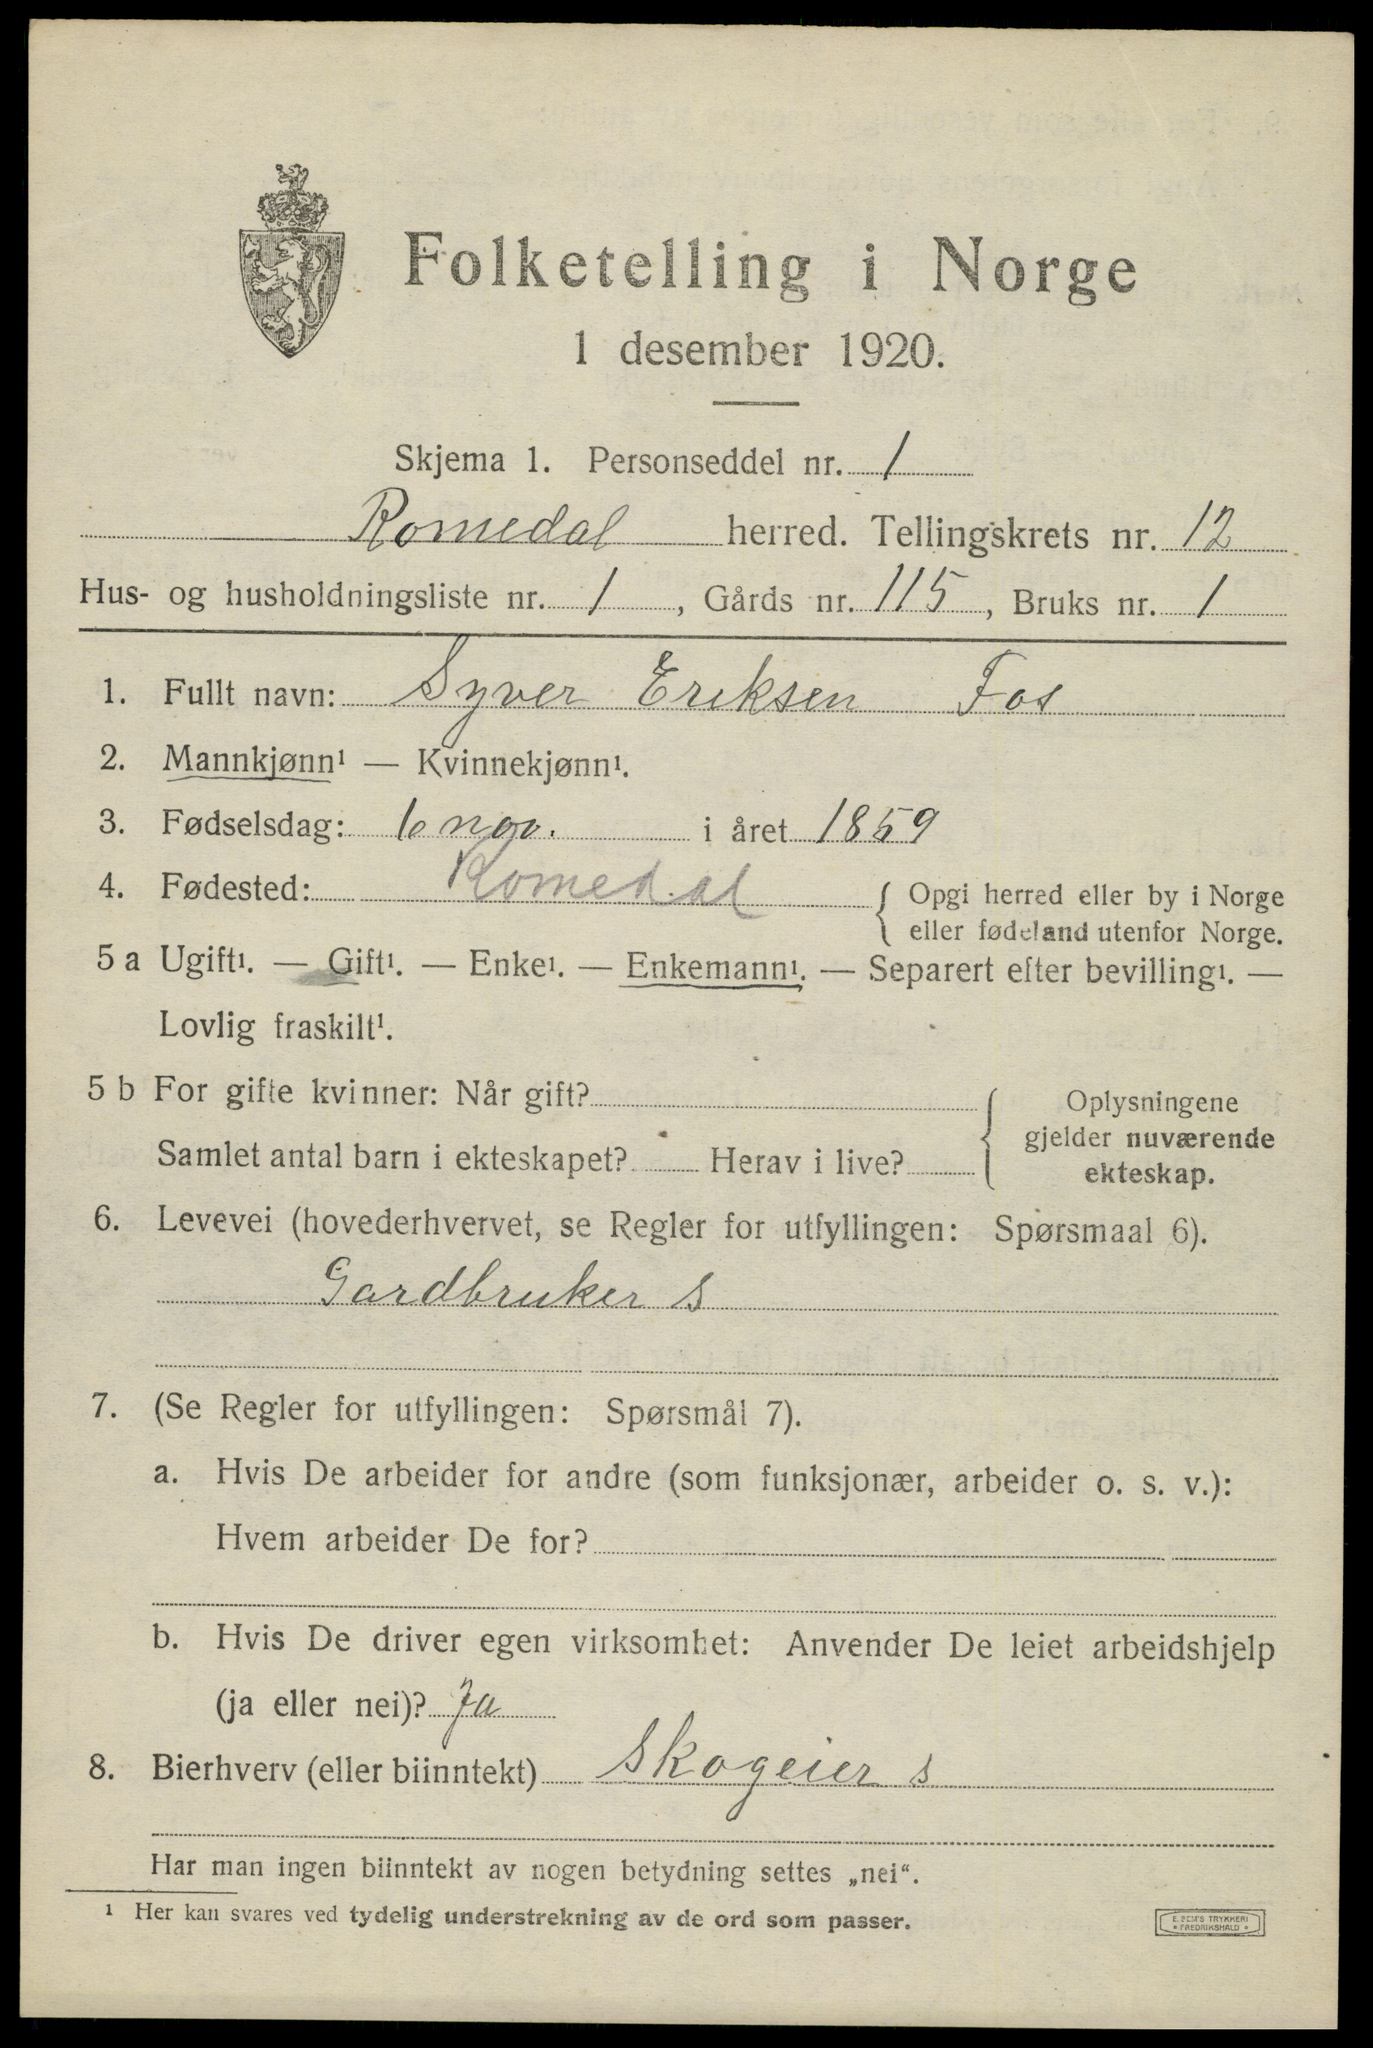 Folketelling i Norge
1 desember 1920.
Skjema 1. Personseddel nr. 1
Romedal herred. Tellingskrets nr. 12
Hus- og husholdningsliste nr. 1, Gårds nr. 115, Bruks nr. 1
1. Fullt navn: Syver Eriksen Fos
2. Mannkjønn¹ — Kvinnekjønn¹.
3. Fødselsdag: 6 nov. i året 1859
4. Fødested: Romedal { Opgi herred eller by i Norge
eller fødeland utenfor Norge.
5 a Ugift¹. — Gift¹. — Enke¹. — Enkemann¹. — Separert efter bevilling¹. —
Lovlig fraskilt¹.
5 b For gifte kvinner: Når gift? { Oplysningene
gjelder nuværende
Samlet antal barn i ekteskapet? Herav i live? ekteskap.
6. Levevei (hovederhvervet, se Regler for utfyllingen: Spørsmaal 6).
Gardbruker s
7. (Se Regler for utfyllingen: Spørsmål 7).
a. Hvis De arbeider for andre (som funksjonær, arbeider o. s. v.):
Hvem arbeider De for?
b. Hvis De driver egen virksomhet: Anvender De leiet arbeidshjelp
(ja eller nei)? Ja
8. Bierhverv (eller biinntekt) Skogeier s
Har man ingen biinntekt av nogen betydning settes „nei“.
¹ Her kan svares ved tydelig understrekning av de ord som passer.
E. SEM'S TRYKKERI
* FREDRIKSHALD *